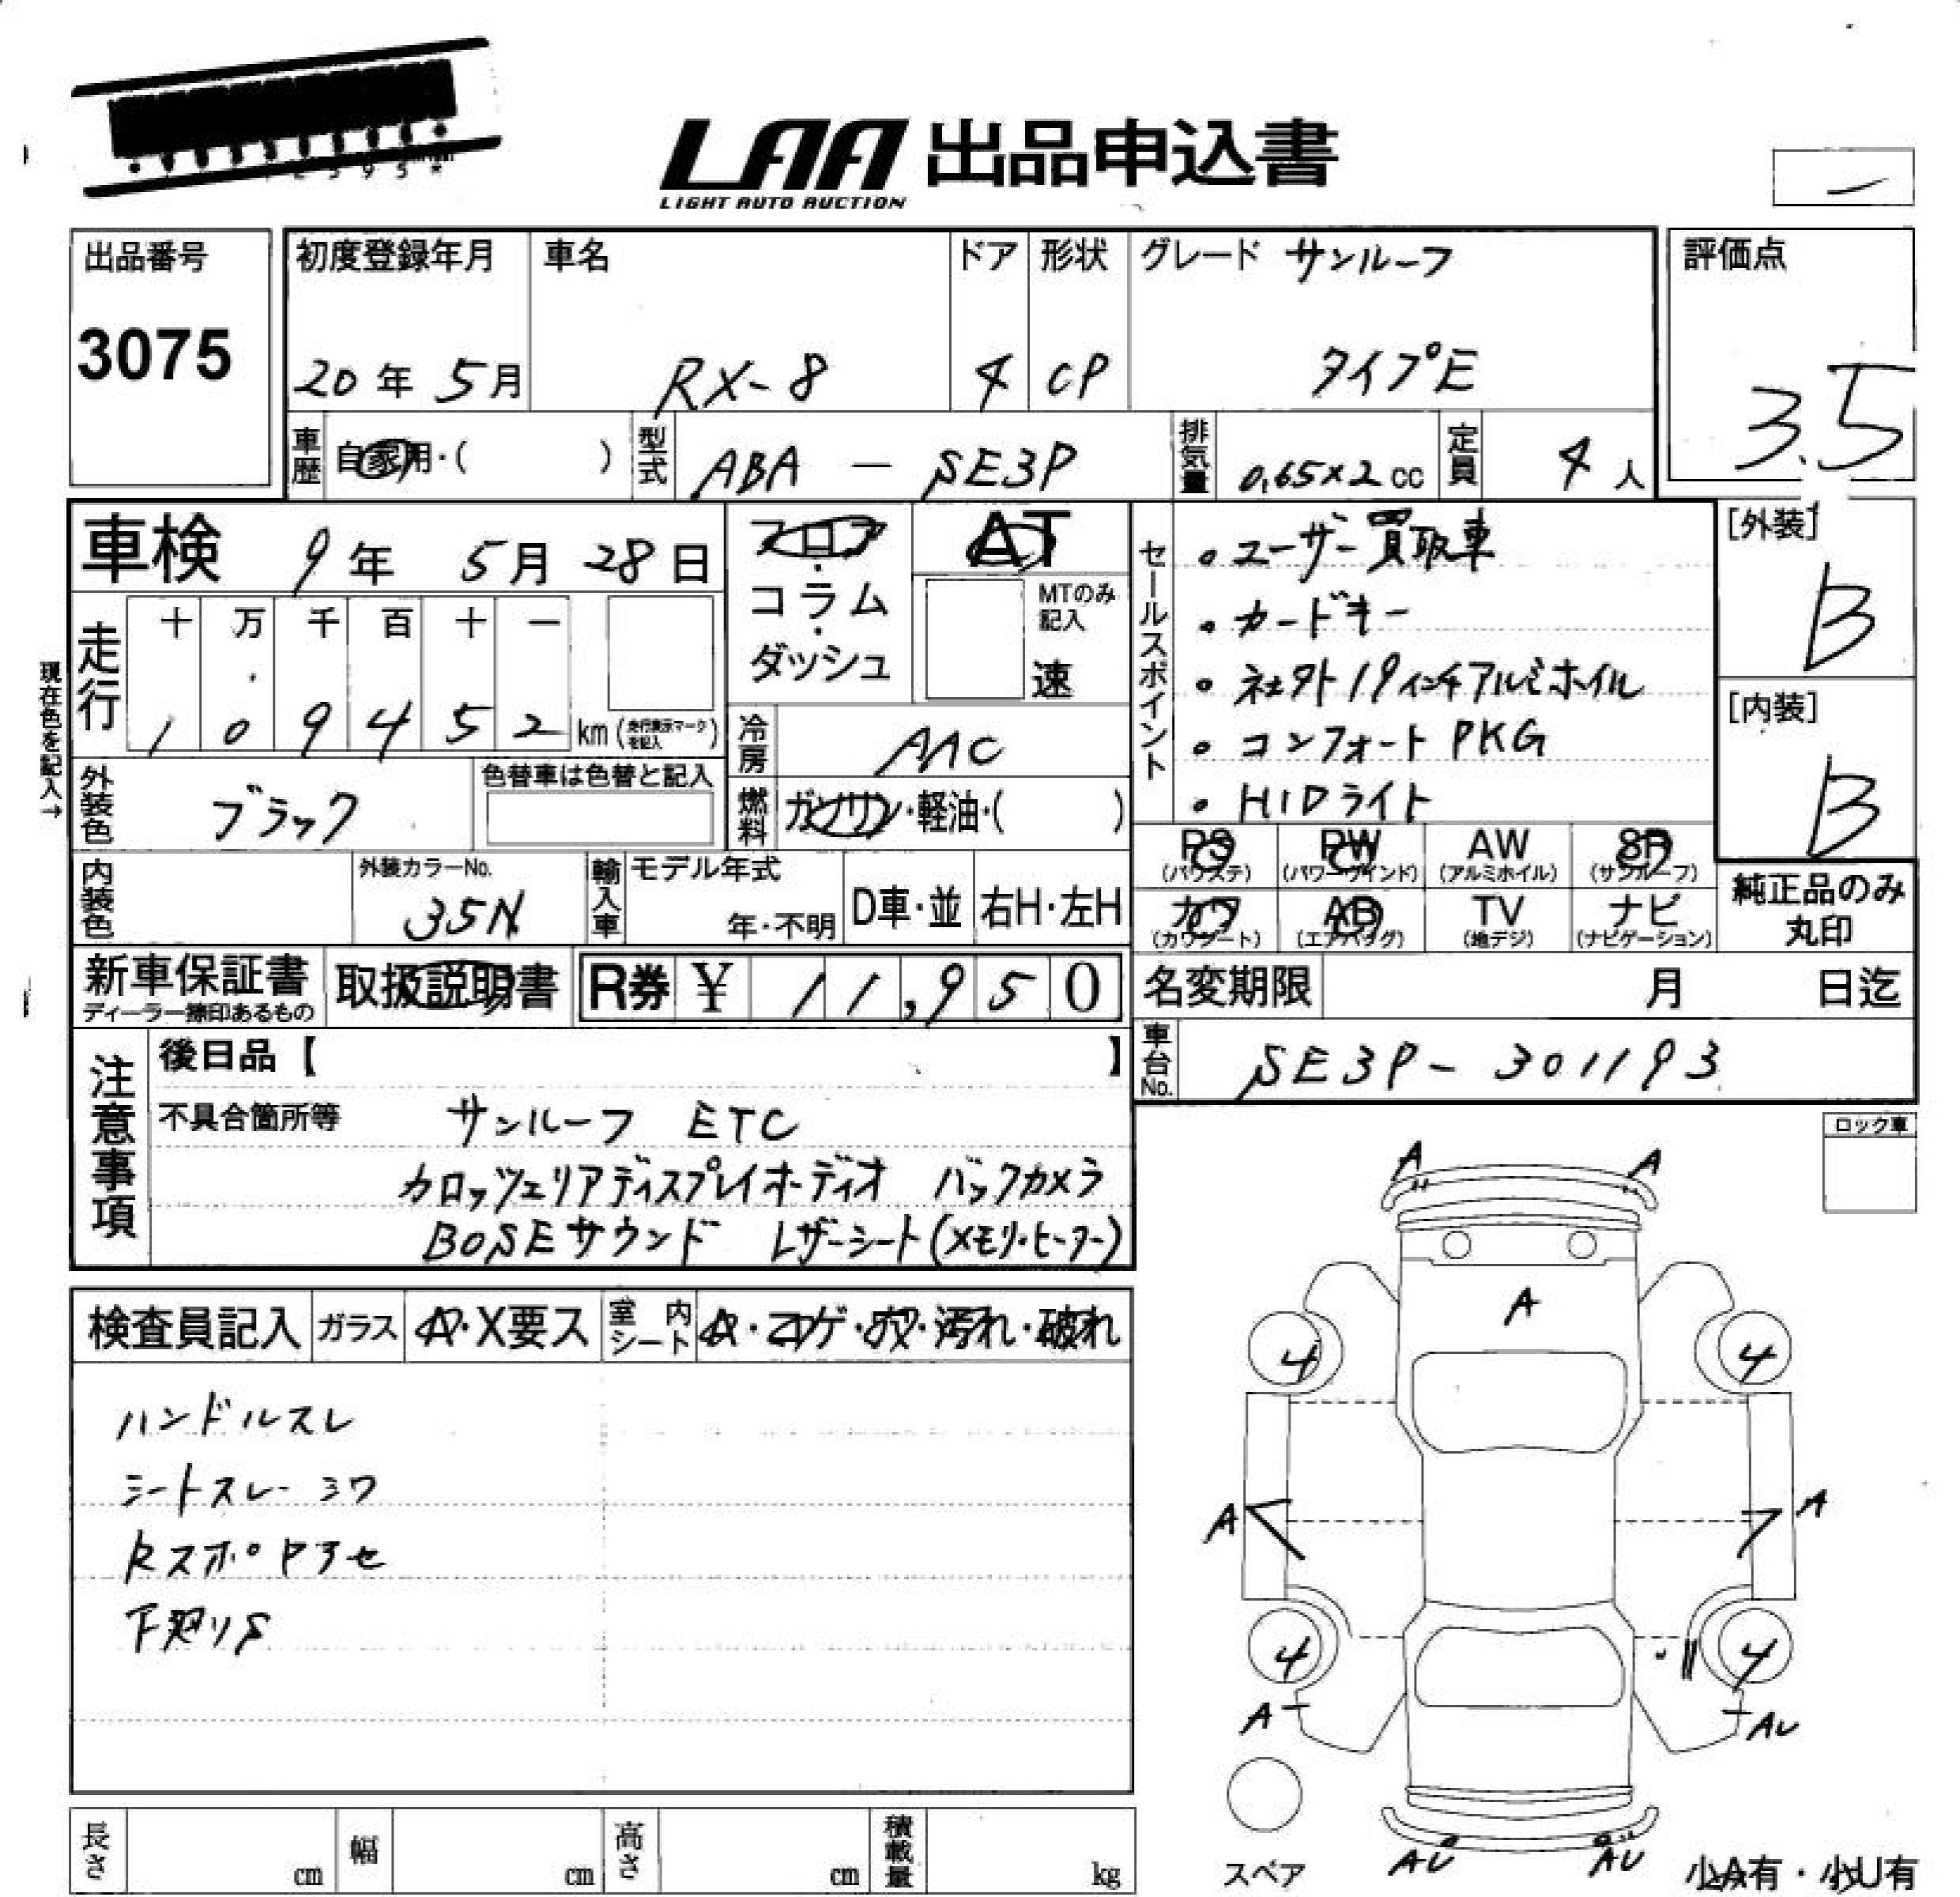 LAA 出品申込書
LIGHT AUTO AUCTION
出品番号
3075
初度登録年月
20年 5月
車名
RX-8
ドア
4
形状
CP
グレード サンルーフ
タイプE
評価点
3.5
車歴
自家用・( )
型式
ABA - SE3P
排気量
0.65×2 cc
定員
4人
車検 9年 5月 28日
フロア・コラム・ダッシュ
AT
MTのみ記入
速
現在色を記入→
走行
十 万 千 百 十 一
1 0 9 4 5 2 km (走行表示マークを記入)
冷房
AAC
燃料
ガソリン・軽油・( )
外装色
ブラック
色替車は色替と記入
内装色
外装カラーNo.
35N
輸入車
モデル年式
年・不明
D車・並
右H・左H
セールスポイント
・ユーザー買取車
・カードキー
・社外19インチアルミホイル
・コンフォートPKG
・HIDライト
[外装]
B
[内装]
B
PS (パワステ)
PW (パワーウインド)
AW (アルミホイル)
SR (サンルーフ)
カワ (カワシート)
AB (エアバッグ)
TV (地デジ)
ナビ (ナビゲーション)
純正品のみ丸印
新車保証書
ディーラー捺印あるもの
取扱説明書
R券 ¥ 11,950
名変期限 月 日迄
車台No.
SE3P-301193
注意事項
後日品【 】
不具合箇所等
サンルーフ ETC
カロッツェリアディスプレイオーディオ バックカメラ
BOSEサウンド レザーシート(メモリ・ヒーター)
ロック車
検査員記入
ガラス
A・X要ス
室内シート
A・コゲ・穴・汚れ・破れ
ハンドルスレ
シートスレ・シワ
Rスポ°アセ
下廻りS
A A
A
4 4
A A
4 4
A AU
AU AU
スペア
小A有・小U有
長さ cm
幅 cm
高さ cm
積載量 kg